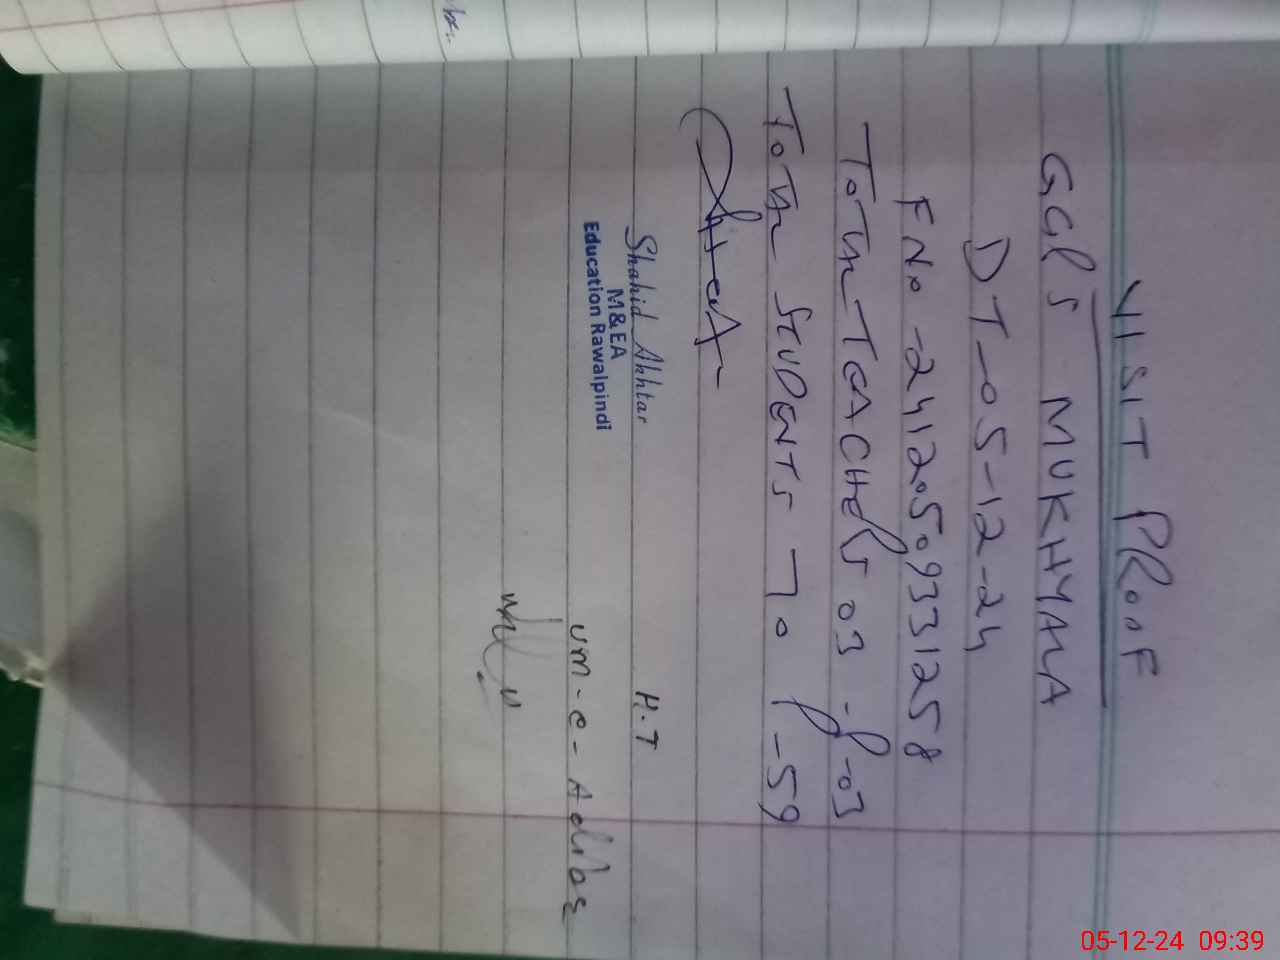 VISIT PROOF
GGPS MUKHYALA
DT-05-12-24
F No -24120509331258
Total TEACHERS 03 - P-03
Total STUDENTS 70 P-59
Shahid Akhtar
M&EA
Education Rawalpindi
H.T
um-e-Adiba
05-12-24 09:39